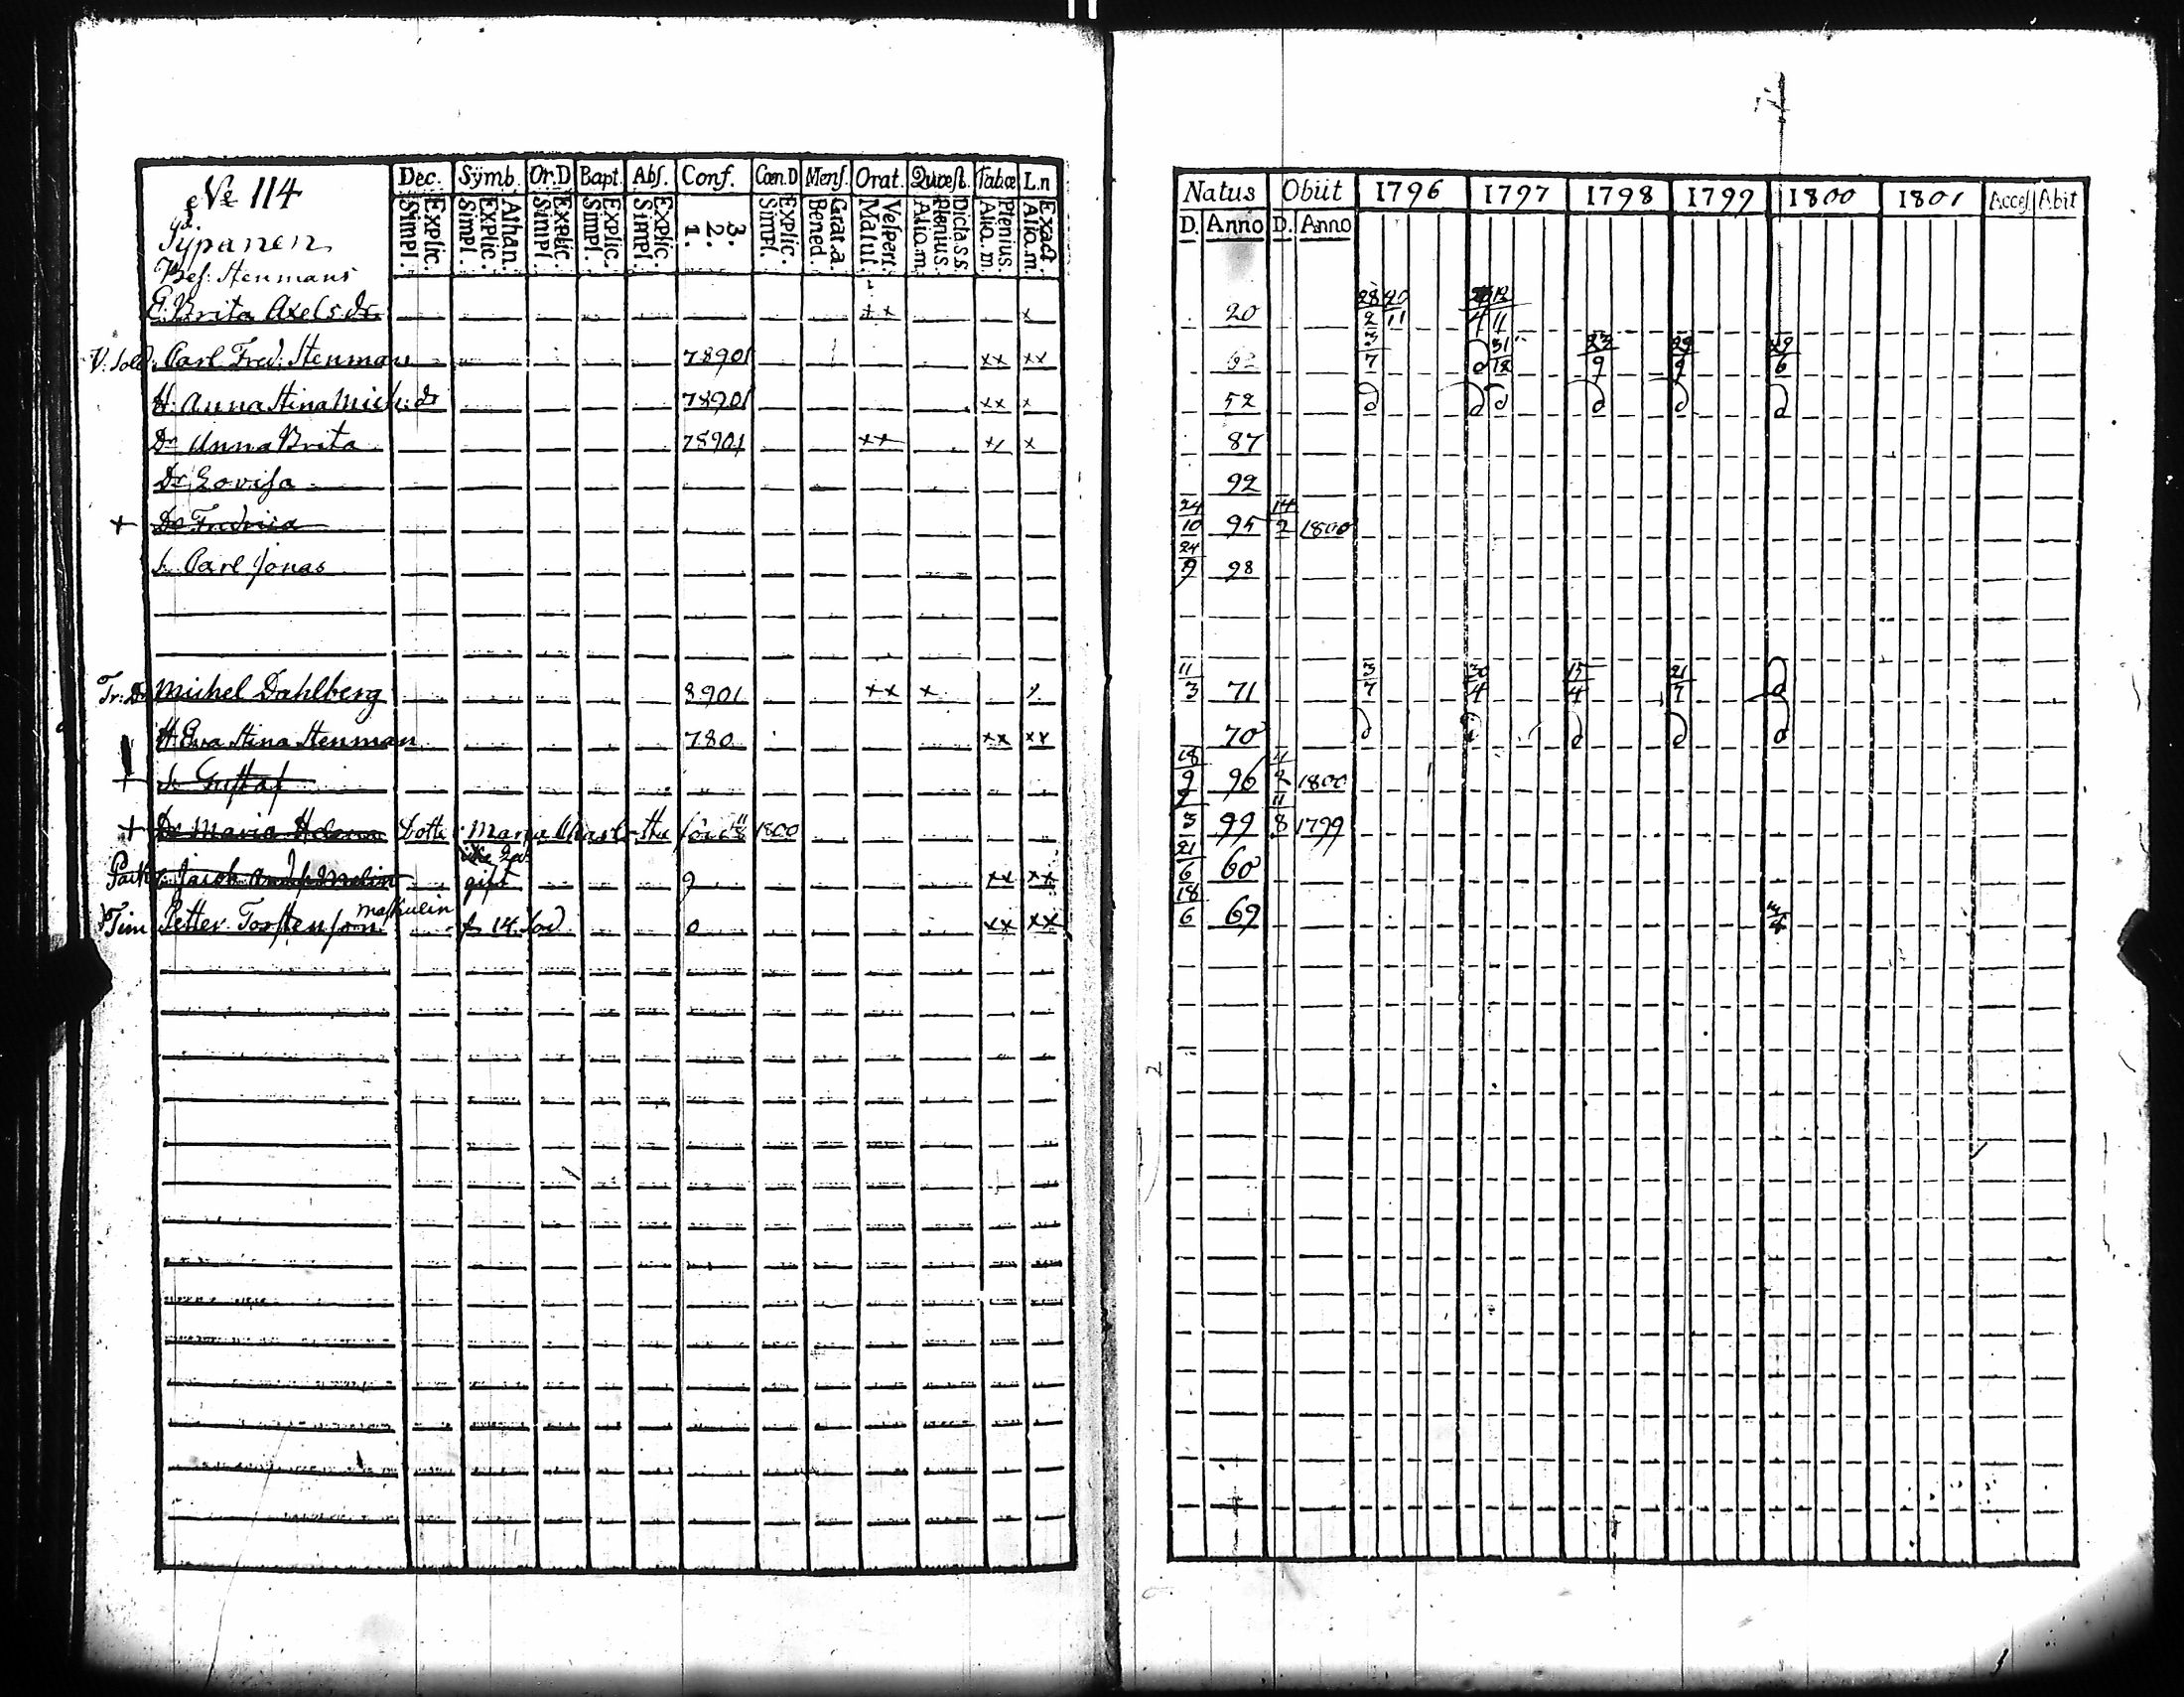 № 114
Sypanen
Bes: Stenmans
Dec. Sÿmb. Or.D Bapt. Abſ. Conf. Cœn.D Menſ. Orat. Quæſt. Tabœ L.n
Simpl. Explic. Simpl. Explic. Athan. Simpl. Explic. Simpl. Explic. Simpl. Explic. 1. 2. 3. Simpl. Explic. Bened. Grat.a. Matut. Veſpert. Alio.m. Plenius. Dicta.s.s. Alio.m. Plenius. Alio.m. Exact.
Natus Obiit 1796 1797 1798 1799 1800 1801 Acceſ Abit
D. Anno D. Anno
E. Brita Axels dr ×× × 20 28/2 20/11 12/11
V. Sold: Carl Fred: Stenman 78901 ×× ×× 62 3/7 31/12 23/9 29/9 29/6
H. Anna Stina Mich: dr 78901 ×× × 52
Dr Anna Brita 78901 ×× ×× × 87
Dr Loviſa 92
+ Dr Fredrica 24/10 95 14/2 1800
S. Carl Jonas 24/9 98
Tr: Dr Michel Dahlberg 8901 ×× × × 11/3 71 3/7 30/4 15/4 21/7
H. Eva Stina Stenman 780 ×× ×× 70
+ S. Guſtaf 18/9 96 11/2 1800
+ Dr Maria Helena Dotter Maria Charl-tta 1800 99 11/8 1799
Jacob gift 9 ×× ×× 21/6 60
Tim Petter Torſtenſon maſkulin 0 ×× ×× 18/6 69